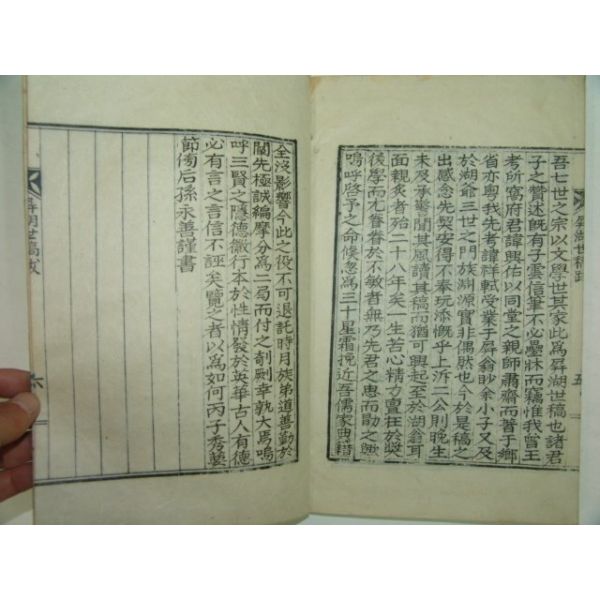 吾七世之宗以文學世其家此爲屛湖世稿也諸君
子之贊述旣有子雲信筆不必疊牀而竊惟我曾王
考所窩府君諱興佑以同堂之親師肅齋而著于鄕
省亦粤我先考諱祥軾受業于屛翁眇余小子又及
於湖爺三世之門族淵源實非偶然也今於是稿之
出感念先契安得不奉玩漆慨乎上泝二公則晩生
未及承謦聞其風讀其稿而猶可興起至於湖翁耳
面親炙者殆二十八年矣一生苦心精力亶在於奬
後學而尤眷眷於不敏者無乃先君之惠而勖之歟
嗚呼啓予之命倏忽爲三十星霜挽近吾儒家典籍
屛湖世稿跋
五
全沒影響今此之役不可退託時月族弟道善勤於
閣先極誠編摩分爲二局而付之剞劂幸孰大焉嗚
呼三賢之隱德徽行本於性情發於英華古人有德
必有言之言信不誣矣覽之者以爲如何丙子秀葽
節傍后孫永善謹書
屛湖世稿跋
六